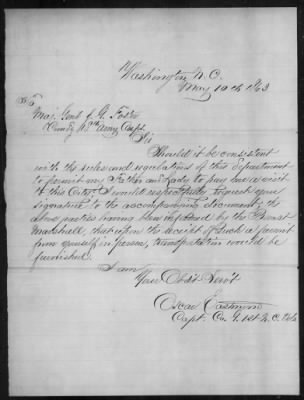 Washington N.C.
May 10th 1863
To
Maj. Genl J. G. Foster
Comdg 18th Army Corps
Sir
Should it be consistent
with the rules and regulations of this Department
to permit my Father and Lady to pay me a visit
to this City, I would respectfully request your
signature to the accompanying document; the
above parties having been informed by the Provost
Marshall, that upon the receipt of such a permit
from yourself in person, transportation would be
furnished.
I am
Your Obdt Servt
Oscar Eastmond
Capt. Co. G. 1st N. C. Vols